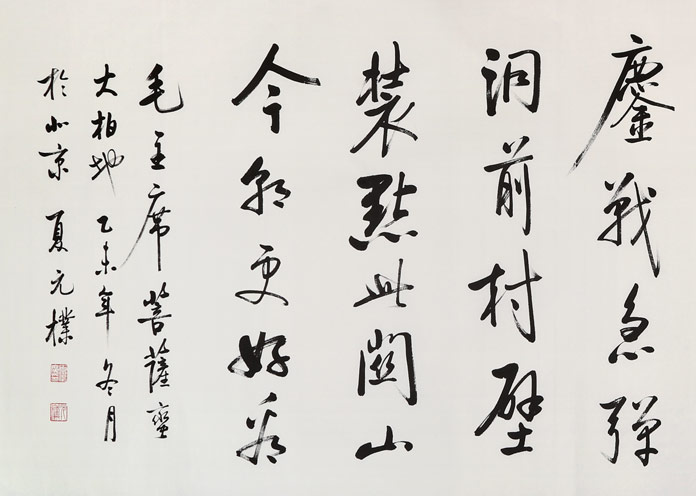 鏖戰急彈
洞前村壁
裝點此關山
今朝更好看
毛主席菩薩蠻
大柏地 乙未年 冬月
於北京 夏元樸